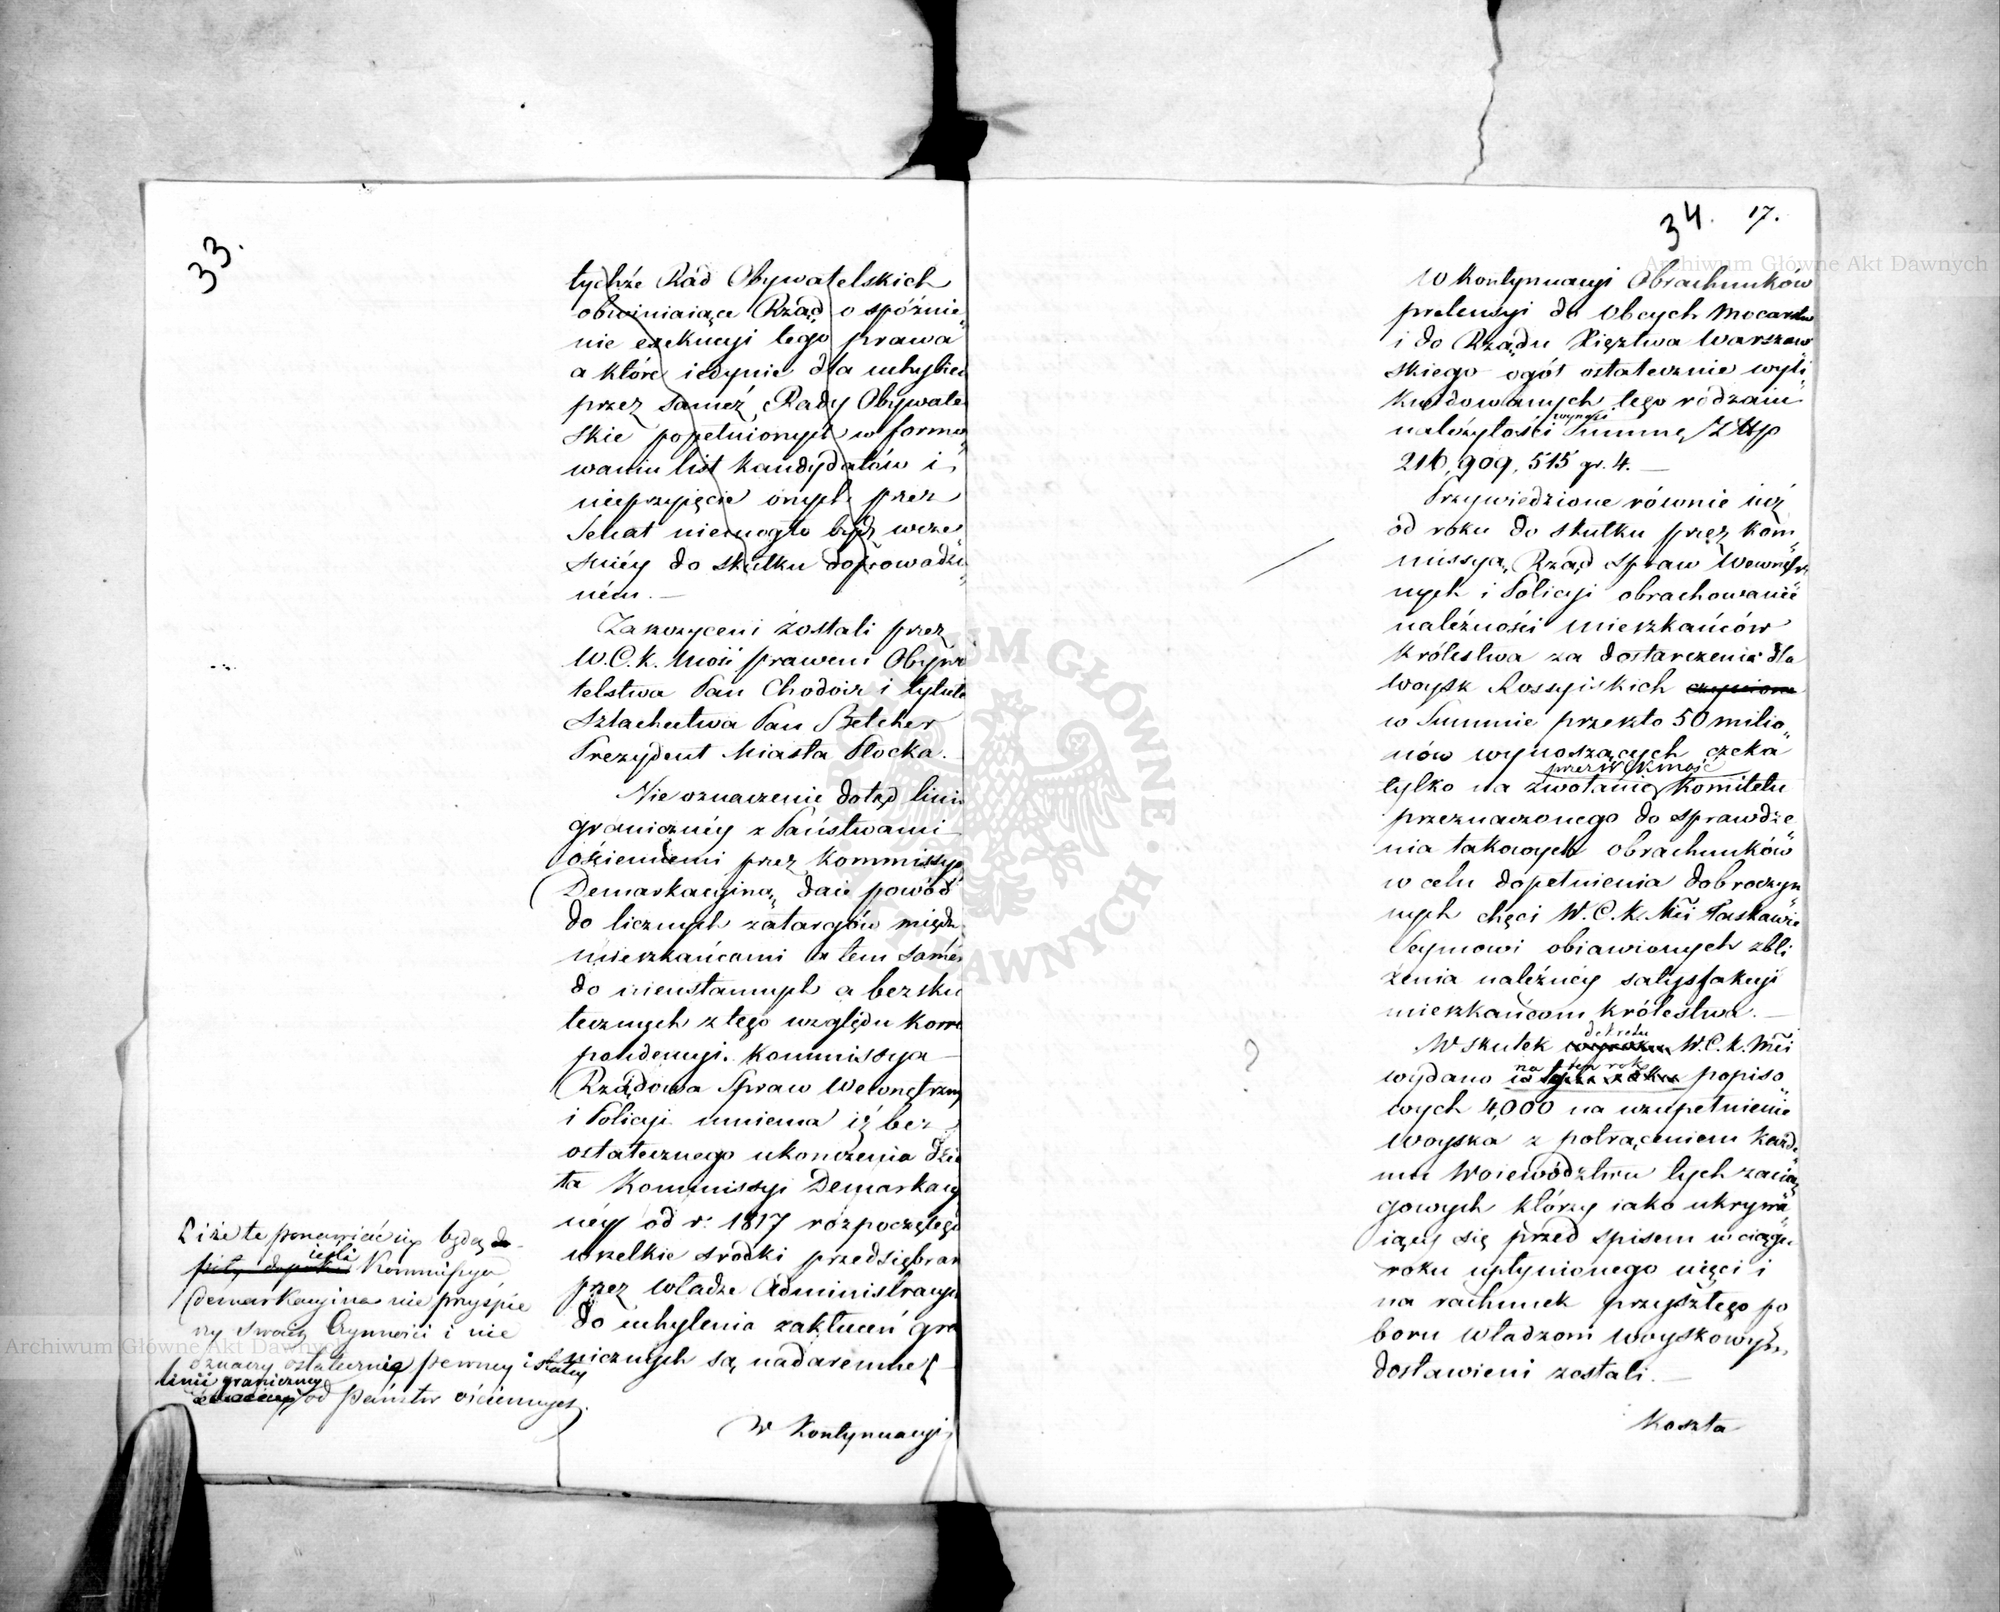 33.
tychże Rad Obywatelskich
obwiniaiące Rząd o spóźnie„
nie exekucyi tego prawa
a które iedynie dla uchybień
przez sameź Rady Obywatel
skie popełnionych w formo„
waniu list kandydatów i
nieprzyięcie onych przez
Senat niemogło bydź wcze
śniéy do skutku doprowadzo„
ném. —
Zaszczyceni zostali przez
W. C. K. Mość prawem Obywa
telstwa Pan Chodoir i tytułem
Szlachectwa Pan Betcher
Prezydent Miasta Płocka. —
Nie oznaczenie dotąd linii
graniczney z Państwami
ościennemi przez Kommissyą
Demarkacyiną, daie powód
do licznych zatargów między
mieszkańcami a tem samém
do nieustannych a bezsku
tecznych z tego względu korres
pondencyi. Kommissya
Rządowa Spraw Wewnętrznych
i Policyi mniema iż bez
ostatecznego ukończenia dzie
ła Kommissyi Demarkacyi
néy od r: 1817 rozpoczętego
wszelkie środki przedsiębrane
przez władze Administracyine
do uchylenia zakłuceń gra
nicznych są nadaremne [
[ i że te ponawiać się będą do
póty dopóki ieśli Kommissya
demarkacyina nie przyśpie
szy swoich Czynności i nie
oznaczy ostatecznie pewney i stałey
linii graniczney
od Państw ościennych.
W Kontynuacyi
34. 17.
W Kontynuacyi Obrachunków
pretensyi do Obcych Mocarstw
i do Rządu Xięztwa Warszaw
skiego ogół ostatecznie wyli„
kwidowanych tego rodzaiu
wynosi
należytości Summę Złtp
216,909,515 gr. 4. —
Przywiedzione równie iuż
od roku do skutku przez Kom„
missyą Rząd Spraw Wewnętrz
nych i Policyi obrachowanie
należności mieszkańców
Królestwa za dostarczenia dla
woysk Rossyiskich czynione
w Summie przeszło 50 milio„
nów wynoszących czeka
przez W. C. K. Mość
tylko na zwołanie Komitetu
przeznaczonego do sprawdze
nia takowych obrachunków
w celu dopełnienia dobroczyn
nych chęci W. C. K. Mci łaskawie
Seymowi obiawionych zbli
żenia należney satysfakcyi
mieszkańcom Królestwa. —
dekretu
W skutek W. C. K. Mci
na ten rok
wydano w tym roku popiso„
wych 4,000 na uzupełnienie
woyska z potrąceniem każde„
mu Woiewództwu tych zacią„
gowych którzy iako ukrywa„
iący się przed spisem w ciągu
roku upłynionego uięci i
na rachunek przyszłego po
boru władzom woyskowym
dostawieni zostali. —
Koszta
Archiwum Główne Akt Dawnych
Archiwum Główne Akt Dawnych